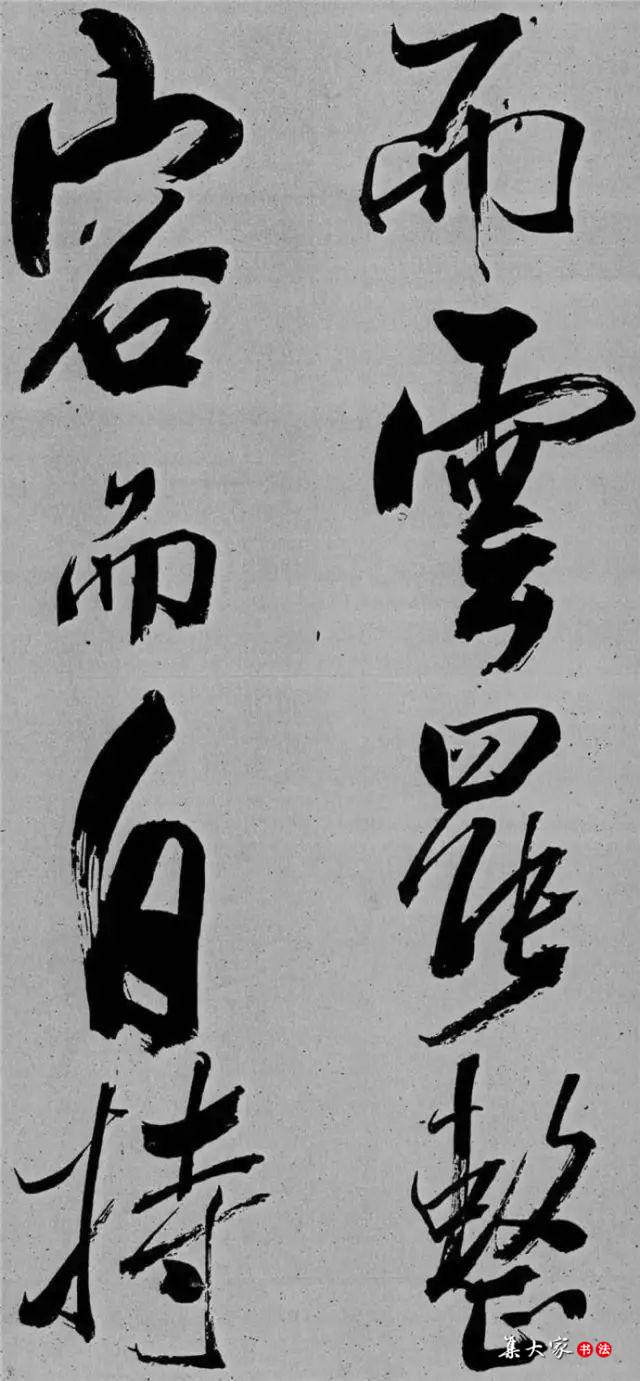 而雲罷整
容而自持
集大家书法